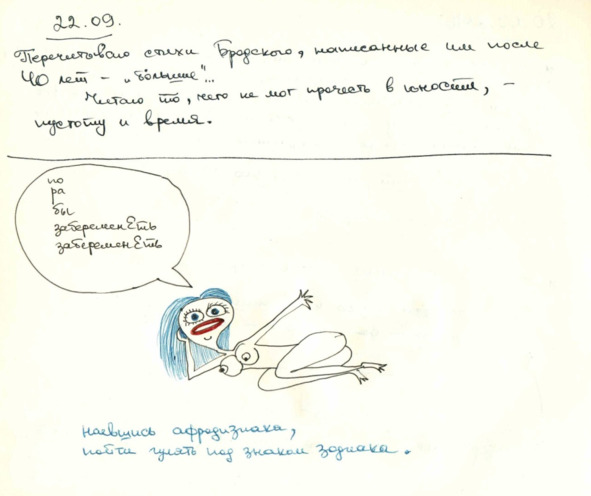 22.09.
Перечитываю стихи Бродского, написанные им после
40 лет – „больше"...
Читаю то, чего не мог прочесть в юности, –
пустоту и время.
по
ра
бы
забеременЕть
забеременЕть
наевшись афродизиака,
пойти гулять под знаком зодиака.